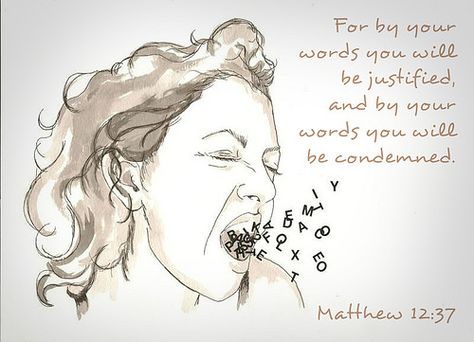 For by your
words you will
be justified,
and by your
words you will
be condemned.
Matthew 12:37